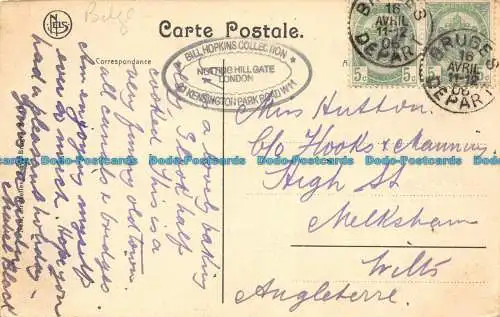 Belge
NELS
Carte Postale.
Correspondance
BILL HOPKINS COLLECTION
NOTTING HILL GATE
LONDON
KENSINGTON PARK ROAD W11
BRUGES
16
AVRIL
11-12
06
DEPART
BRUGES
16
AVRIL
11-12
06
DEPART
5c
5c
5c
Miss Hutton.
c/o Hooks & Manning
High St
Melksham
Wilts
Angleterre.
a lovely baking
day I look half
cooked This is a
very funny old town
all canals & bridges
Am enjoying myself
ever so much. Hope you
had a pleasant holiday
Dodo-Postcards
Dodo-Postcards
Dodo-Postcards
Dodo-Postcards